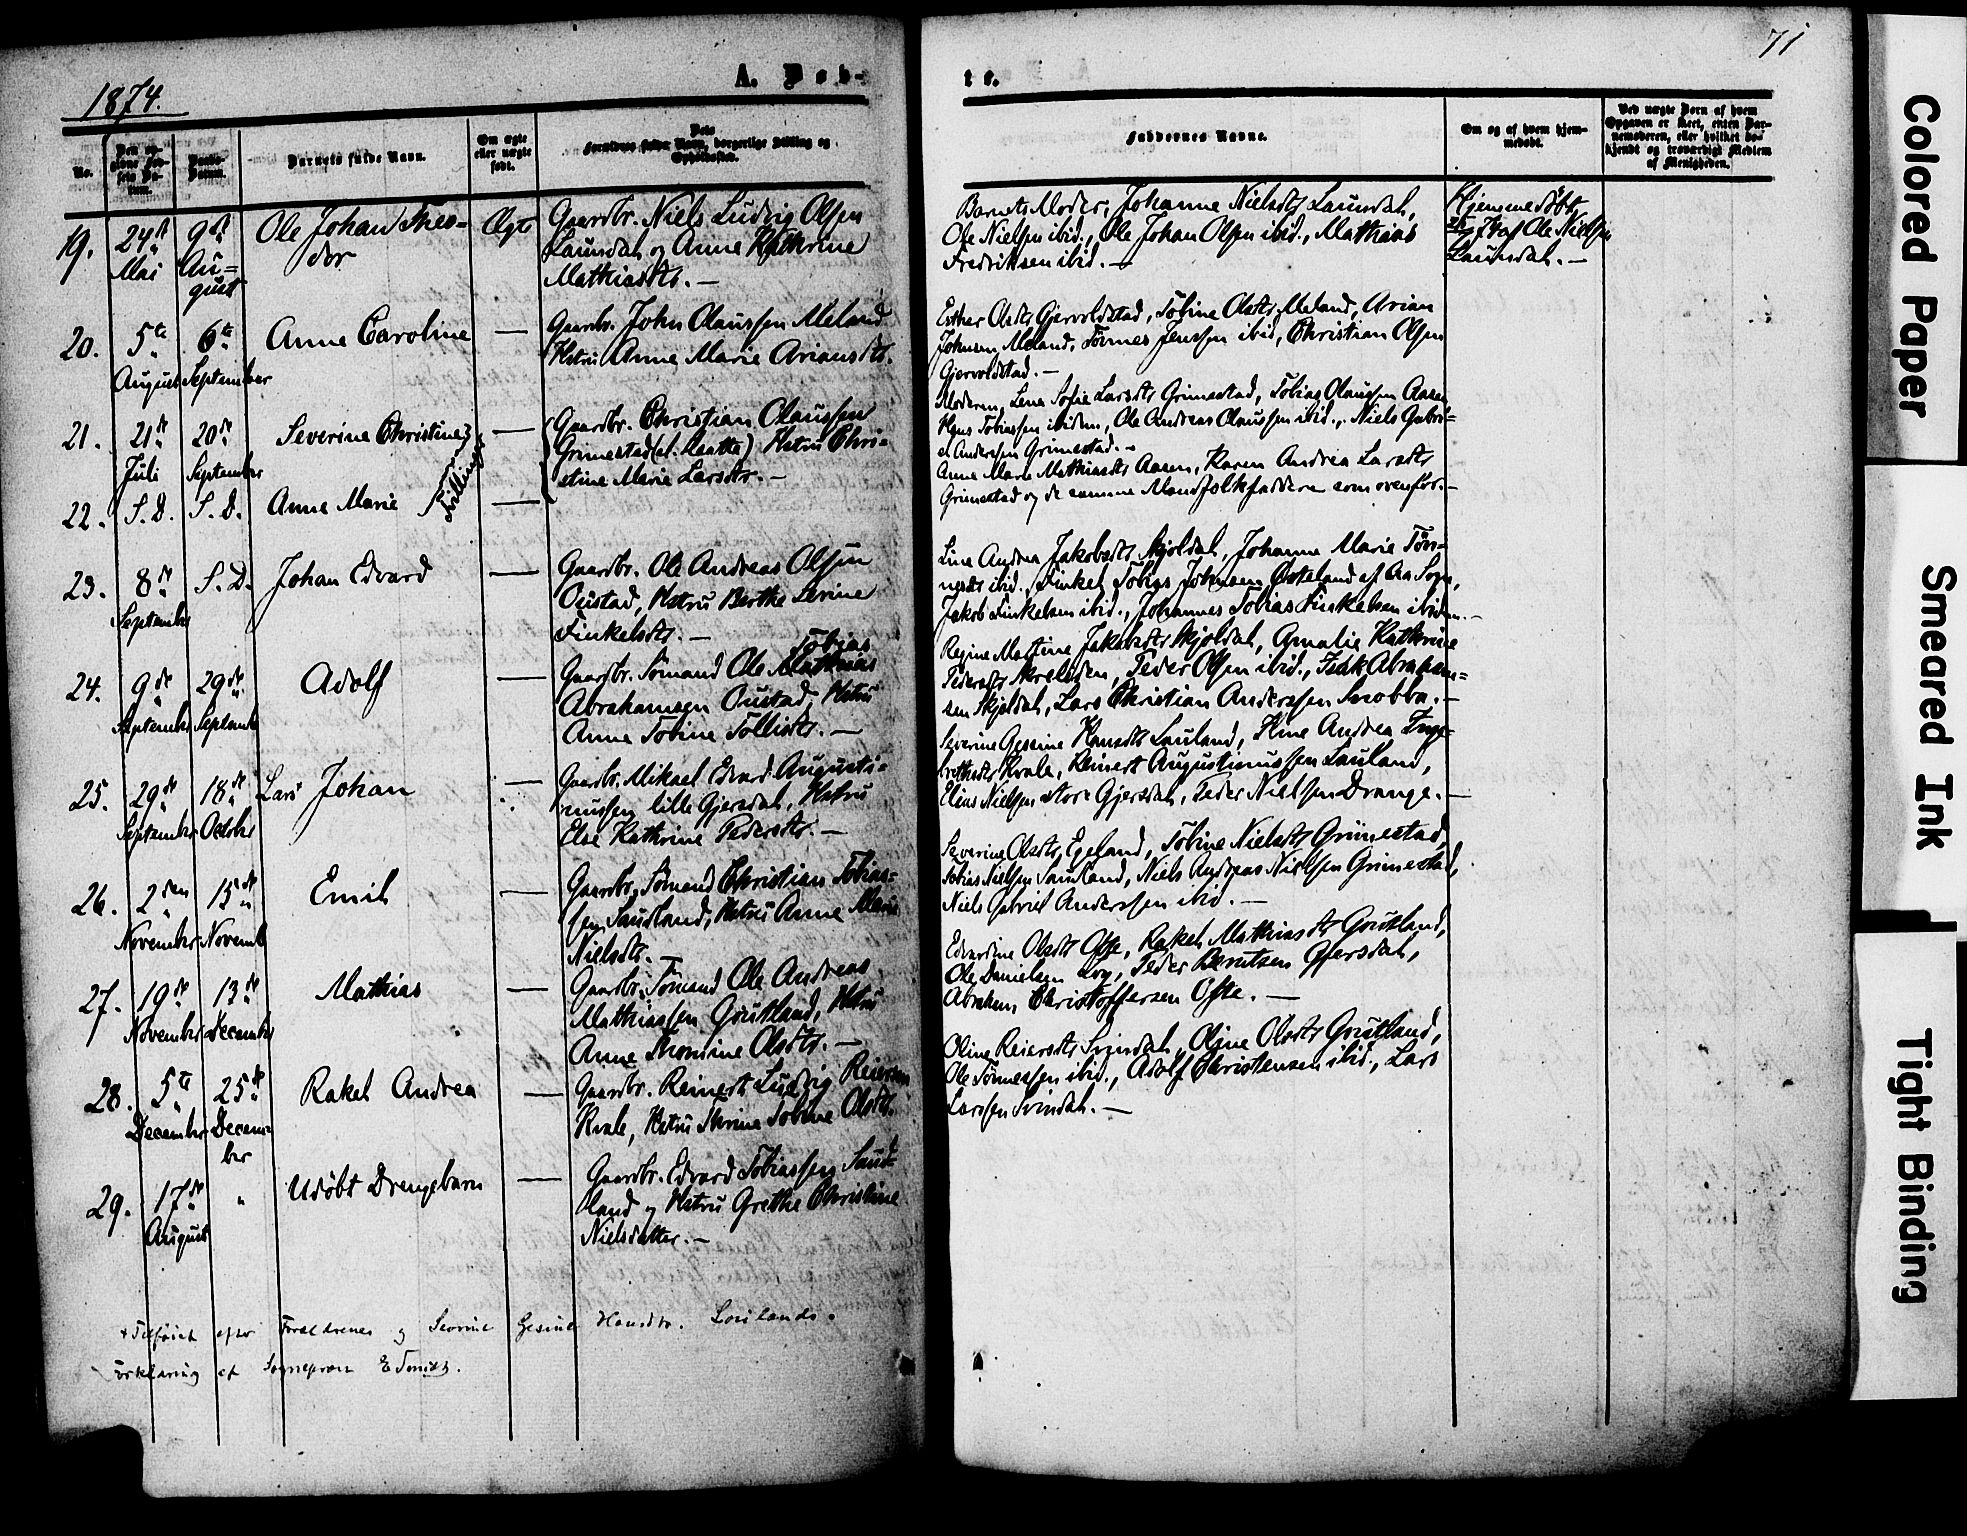 1874.
A. Døb-
No.
Barnets fulde Navn.
Om ægte
eller uægte
født.
19.
24de
Mai
9de
Au-
gust
Ole Johan Theo-
dor
Ægte
Gaardbr. Niels Ludvig Olsen
Launsdal og Anne Kathrine
Mathiasdtr. —
20.
5te
August
6te
September
Anne Caroline
—
Gaardbr. John Olaussen Meland
Hstru Anne Marie Ariansdtr.
21.
21de
Juli
20de
September
Severine Christine
Tvillinger
—
Gaardbr. Christian Olaussen
Grimestad Hstru Chri-
stine Marie Larsdtr. —
22.
S. D.
S. D.
Anne Marie
—
23.
8de
September
S. D.
Johan Edvard
—
Gaardbr. Ole Andreas Olsen
Oustad, Hstru Berthe Serine
Finkelsdtr. —
24.
9de
September
29de
Septembr
Adolf
—
Tobias
Gaardbr. Sømand Ole Mathias
Abrahamsen Oustad, Hstru
Anne Tobine Tollisdtr. —
25.
29de
September
18de
Octobr
Lars Johan
—
Gaardbr. Mikael Edvard Augusti-
nussen lille Gjersdal, Hstru
Else Kathrine Pedersdtr. —
26.
2den
Novembr
15de
Novemb
Emil
—
Gaardbr. Sømand Christian Tobias-
sen Saudland, Hstru Anne Marie
Nielsdtr. —
27.
19de
Novembr
13de
December
Mathias
—
Gaardbr. Sømand Ole Andreas
Mathiassen Grutland, Hstru
Anne Thomine Olsdtr. —
28.
5te
Decembr
25de
Decem-
ber
Rakel Andrea
—
Gaardbr. Reinert Ludvig Reiersen
Kvale, Hstru Tobine Olsdtr.
29.
17de
August
"
Udøbt Drengebarn
—
Gaardbr. Edvard Tobiassen Saud-
land og Hstru Grethe Christine
Nielsdatter. —
+ Tilføiet efter Forældrenes og Severine Gesine Hansdtr. Laulands
Erklæring af Sogneprest
71
te.
Faddernes Navne.
Om og af hvem hjem-
medøbt.
Ved uægte Børn af hvem
Opgaven er skeet, enten Bar-
nemoderen, eller hvilket be-
kjendt og troværdigt Medlem
af Menigheden.
Barnets Moder, Johanne Nielsdtr Launsdal,
Ole Nielsen ibid., Ole Johan Olsen ibid., Mathias
Fredriksen ibid. —
Hjemmedøbt
af Ole Nielsen
Launsdal. —
Esther Olsdtr Gjervoldstad, Tobine Olsdtr Meland, Arian
Johnsen Meland, Tønnes Jenssen ibid, Christian Olsen
Gjervoldstad. —
Moderen, Lene Sofie Larsdtr Grimestad, Tobias Olaussen Aasen
Hans Tobiassen ibidem, Ole Andreas Olaussen ibid., Niels Gabri-
el Anderssen Grimestad. —
Anne Marie Mathiasdtr Aasen, Karen Andrea Larsdtr
Grimestad og de samme Mandfolkfaddere som ovenfor. —
Line Andrea Jakobsdtr Skjoldal, Johanne Marie Tøn-
nesdtr ibid., Finkel Tobias Johnsen Østeland af Aa Sogn,
Jakob Finkelsen ibid., Johannes Tobias Finkelsen ibidem. —
Regine Martine Jakobsdtr Skjoldal, Amalie Kathrine
Pedersdtr Skreluden, Peder Olsen ibid., Isak Abraham-
sen Skjoldal, Lars Christian Anderssen Snobba. —
Severine Gesine Hansdtr Lauland, Stine Andrea Inge-
brethsdtr Kvale, Reinert Augustinussen Lauland,
Elias Nielsen store Gjersdal, Peder Nielsen Drange. —
Severine Olsdtr Egeland, Tobine Nielsdtr Grimestad,
Tobias Nielsen Saudland, Niels Andreas Nielsen Grimestad,
Niels Gabriel Anderssen ibid. —
Edvardine Olsdtr Ofte, Rakel Mathiasdtr Grutland,
Ole Danielsen Log, Peder Berntsen Gjersdal,
Abraham Christoffersen Ofte. —
Oline Reiersdtr Svindal, Oline Olsdtr Grutland,
Ole Tønnessen ibid., Adolf Christensen ibid., Lars
Larssen Svindal. —
Colored Paper
Smeared Ink
Tight Binding